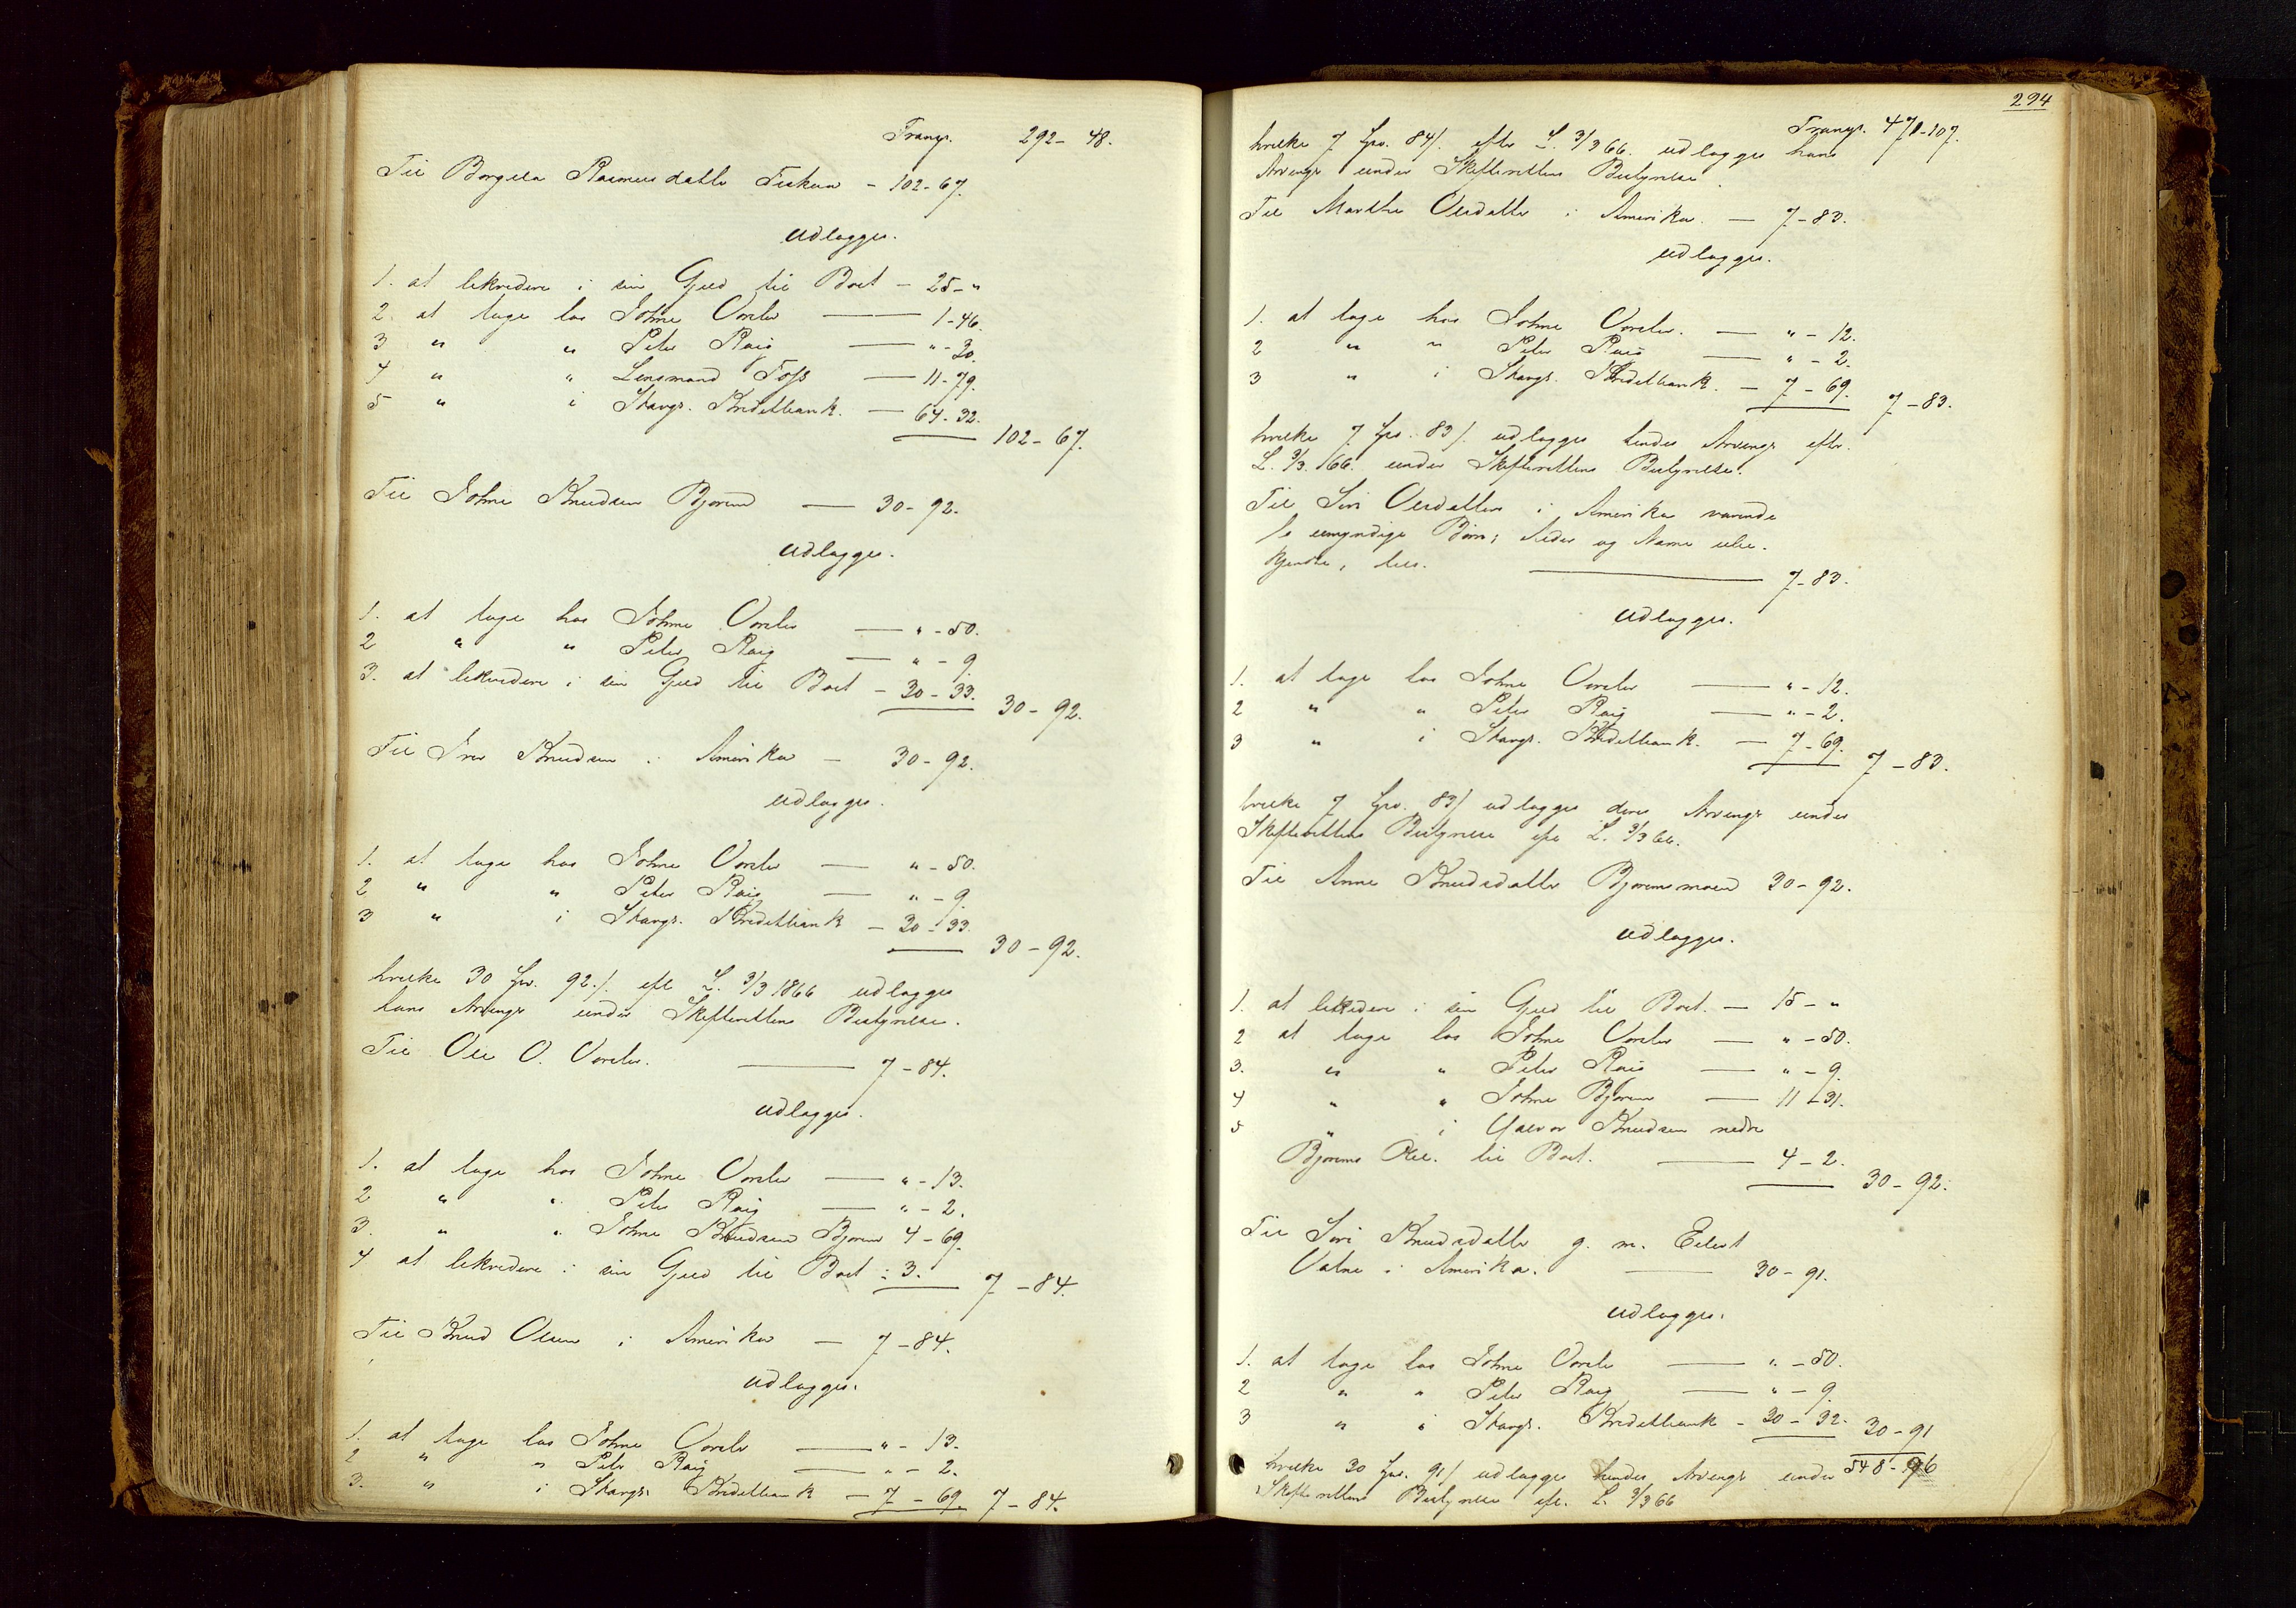 Transp. 292 - 48.
Til Borgela Rasmusdatter Tiskum - 102 - 67.
udlægges.
1. at likvidere i sin Gjeld til Boet - 25 - "
2. at tage hos Johne Voreler — 1 - 46.
3 " " Peter Raig — " - 20.
4 " " Lensmand Foss — 11 - 79.
5 " i Stavgr. Kreditbank. — 64 - 32.
102 - 67.
Til Johne Knudsen Bjørem — 30 - 92.
udlægges.
1. at tage hos Johne Voreler — " - 50.
2 " " Peter Raig — " - 9
3. at likvidere i sin Gjeld til Boet - 30 - 33.
30 - 92.
Til Iver Knudsen i Amerika — 30 - 92.
udlægges.
1. at tage hos Johne Voreler — " - 50.
2 " " Peter Raig — " - 9.
3 " i Stavgr. Kreditbank — 30 - 33.
30 - 92.
hvilke 30 Spd. 92 /. eft. L. 3/3 1866 udlægges
hans Arvinger under Skifterettens Bestyrelse.
Til Ole O. Voreler. — 7 - 84.
udlægges.
1. at tage hos Johne Voreler — " - 13.
2 " " Peter Raig — " - 2.
3. " " Johne Knudsen Bjørem 4 - 69.
4 at likvidere i sin Gjeld til Boet : 3. -
7 - 84.
Til Knud Olsen i Amerika — 7 - 84.
udlægges.
1. at tage hos Johne Voreler — " - 13.
2 " " Peter Raig — " - 2.
3. " i Stavgr. Kreditbank — 7 - 69. 7 - 84.
294
Transp. 471 - 107.
hvilke 7 Spd. 84 /. efter L. 3/3 66. udlægges hans
Arvinger under Skifterettens Bestyrelse.
Til Marthe Olsdatter i Amerika. — 7 - 83.
udlægges.
1. at tage hos Johne Voreler. — " - 12.
2 " " Peter Raig — " - 2.
3 " i Stavgr. Kreditbank. — 7 - 69.
7 - 83.
hvilke 7 Spd. 83 /. udlægges hendes Arvinger efter
L. 3/3. 66. under Skifterettens Bestyrelse.
Til Siri Olsdatters i Amerika værende
umyndige Børn, Alder og Navne ube-
kjendte,
7 - 83.
udlægges.
1. at tage hos Johne Voreler — " - 12.
2 " " Peter Raig — " - 2.
3 " i Stavgr. Kreditbank. — 7 - 69.
7 - 83.
hvilke 7 Spd. 83 / udlægges deres Arvinger under
Skifterettens Bestyrelse eft. L. 3/3 66.
Til Anne Knudsdatter Bjøremsmoen 30 - 92.
udlægges.
1. at likvidere i sin Gjeld til Boet. — 15 - "
2 at tage hos Johne Voreler — " - 50.
3. " " Peter Raig — " - 9.
4 " " Johne Bjørem — 11 - 31.
5 " i Halvor Knudsen nedre
Bjørems til Boet. — 4 - 2.
30 - 92.
Til Siri Knudsdatter g. m. Eilert
Vatne i Amerika. — 30 - 91.
udlægges.
1. at tage hos Johne Voreler — " - 50.
2 " " Peter Raig — " - 9.
3 " i Stavgr. Kreditbank - 30 - 32. 30 - 91
548 - 96
hvilke 30 Spd. 91 / udlægges hendes Arvinger under
Skifterettens Bestyrelse eft. L. 3/3 66